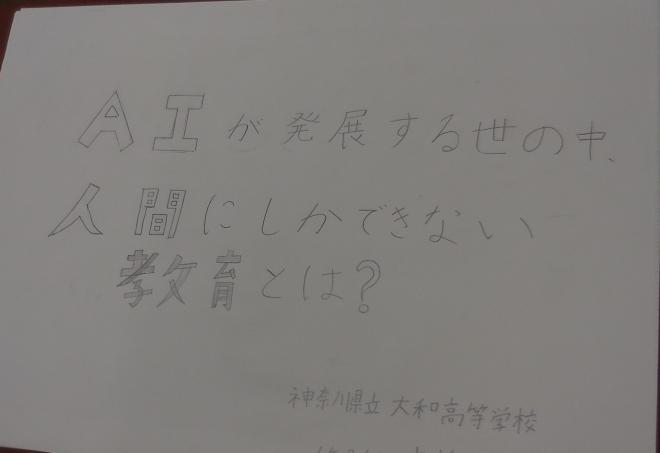 AIが発展する世の中、
人間にしかできない
教育とは?
神奈川県立 大和高等学校